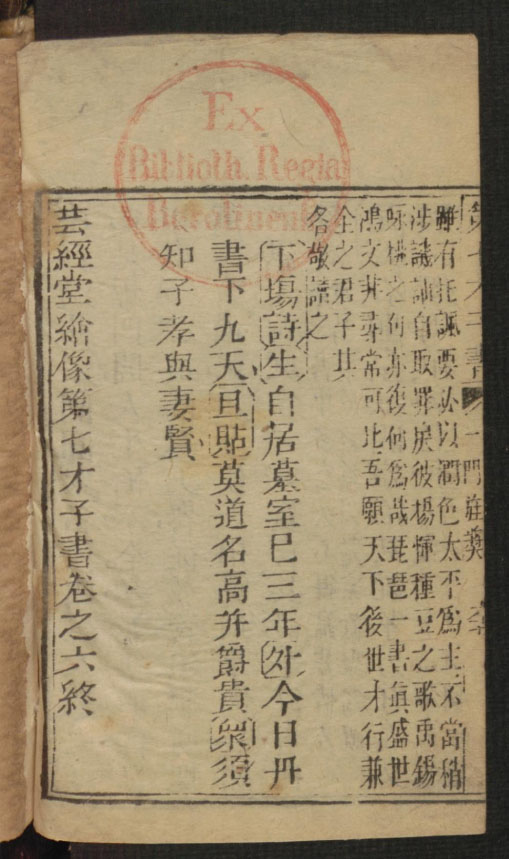 Ex
Biblioth. Regia
Berolinensi
第七才子書 一門旌獎
雖有托諷要必以潤色太平為主不當稍
涉譏訕自取罪戾彼楊惲種豆之歌禹錫
咏桃之句亦復何為哉琵琶一書眞盛世
鴻文非尋常可比吾願天下後世才行兼
全之君子其
各敬讀之
下塲詩生自居墓室已三年外今日丹
書下九天旦貼莫道名高并爵貴衆須
知子孝與妻賢
芸經堂繪像第七才子書卷之六終